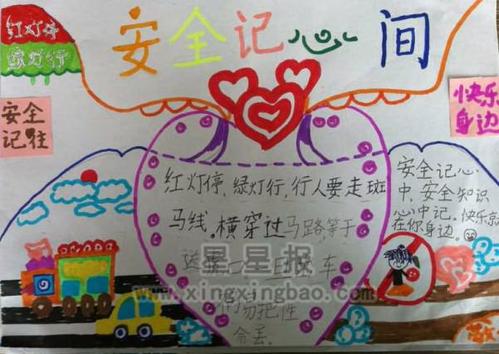 安全记心间
红灯停
绿灯行
安全
记驻
快乐
身边
红灯停,绿灯行,行人要走班
马线,横穿过马路,等于
车
把性
命丢.
安全记心
中,安全知识
心中记.快乐
在你身边.
星星报
www.xingxingbao.com